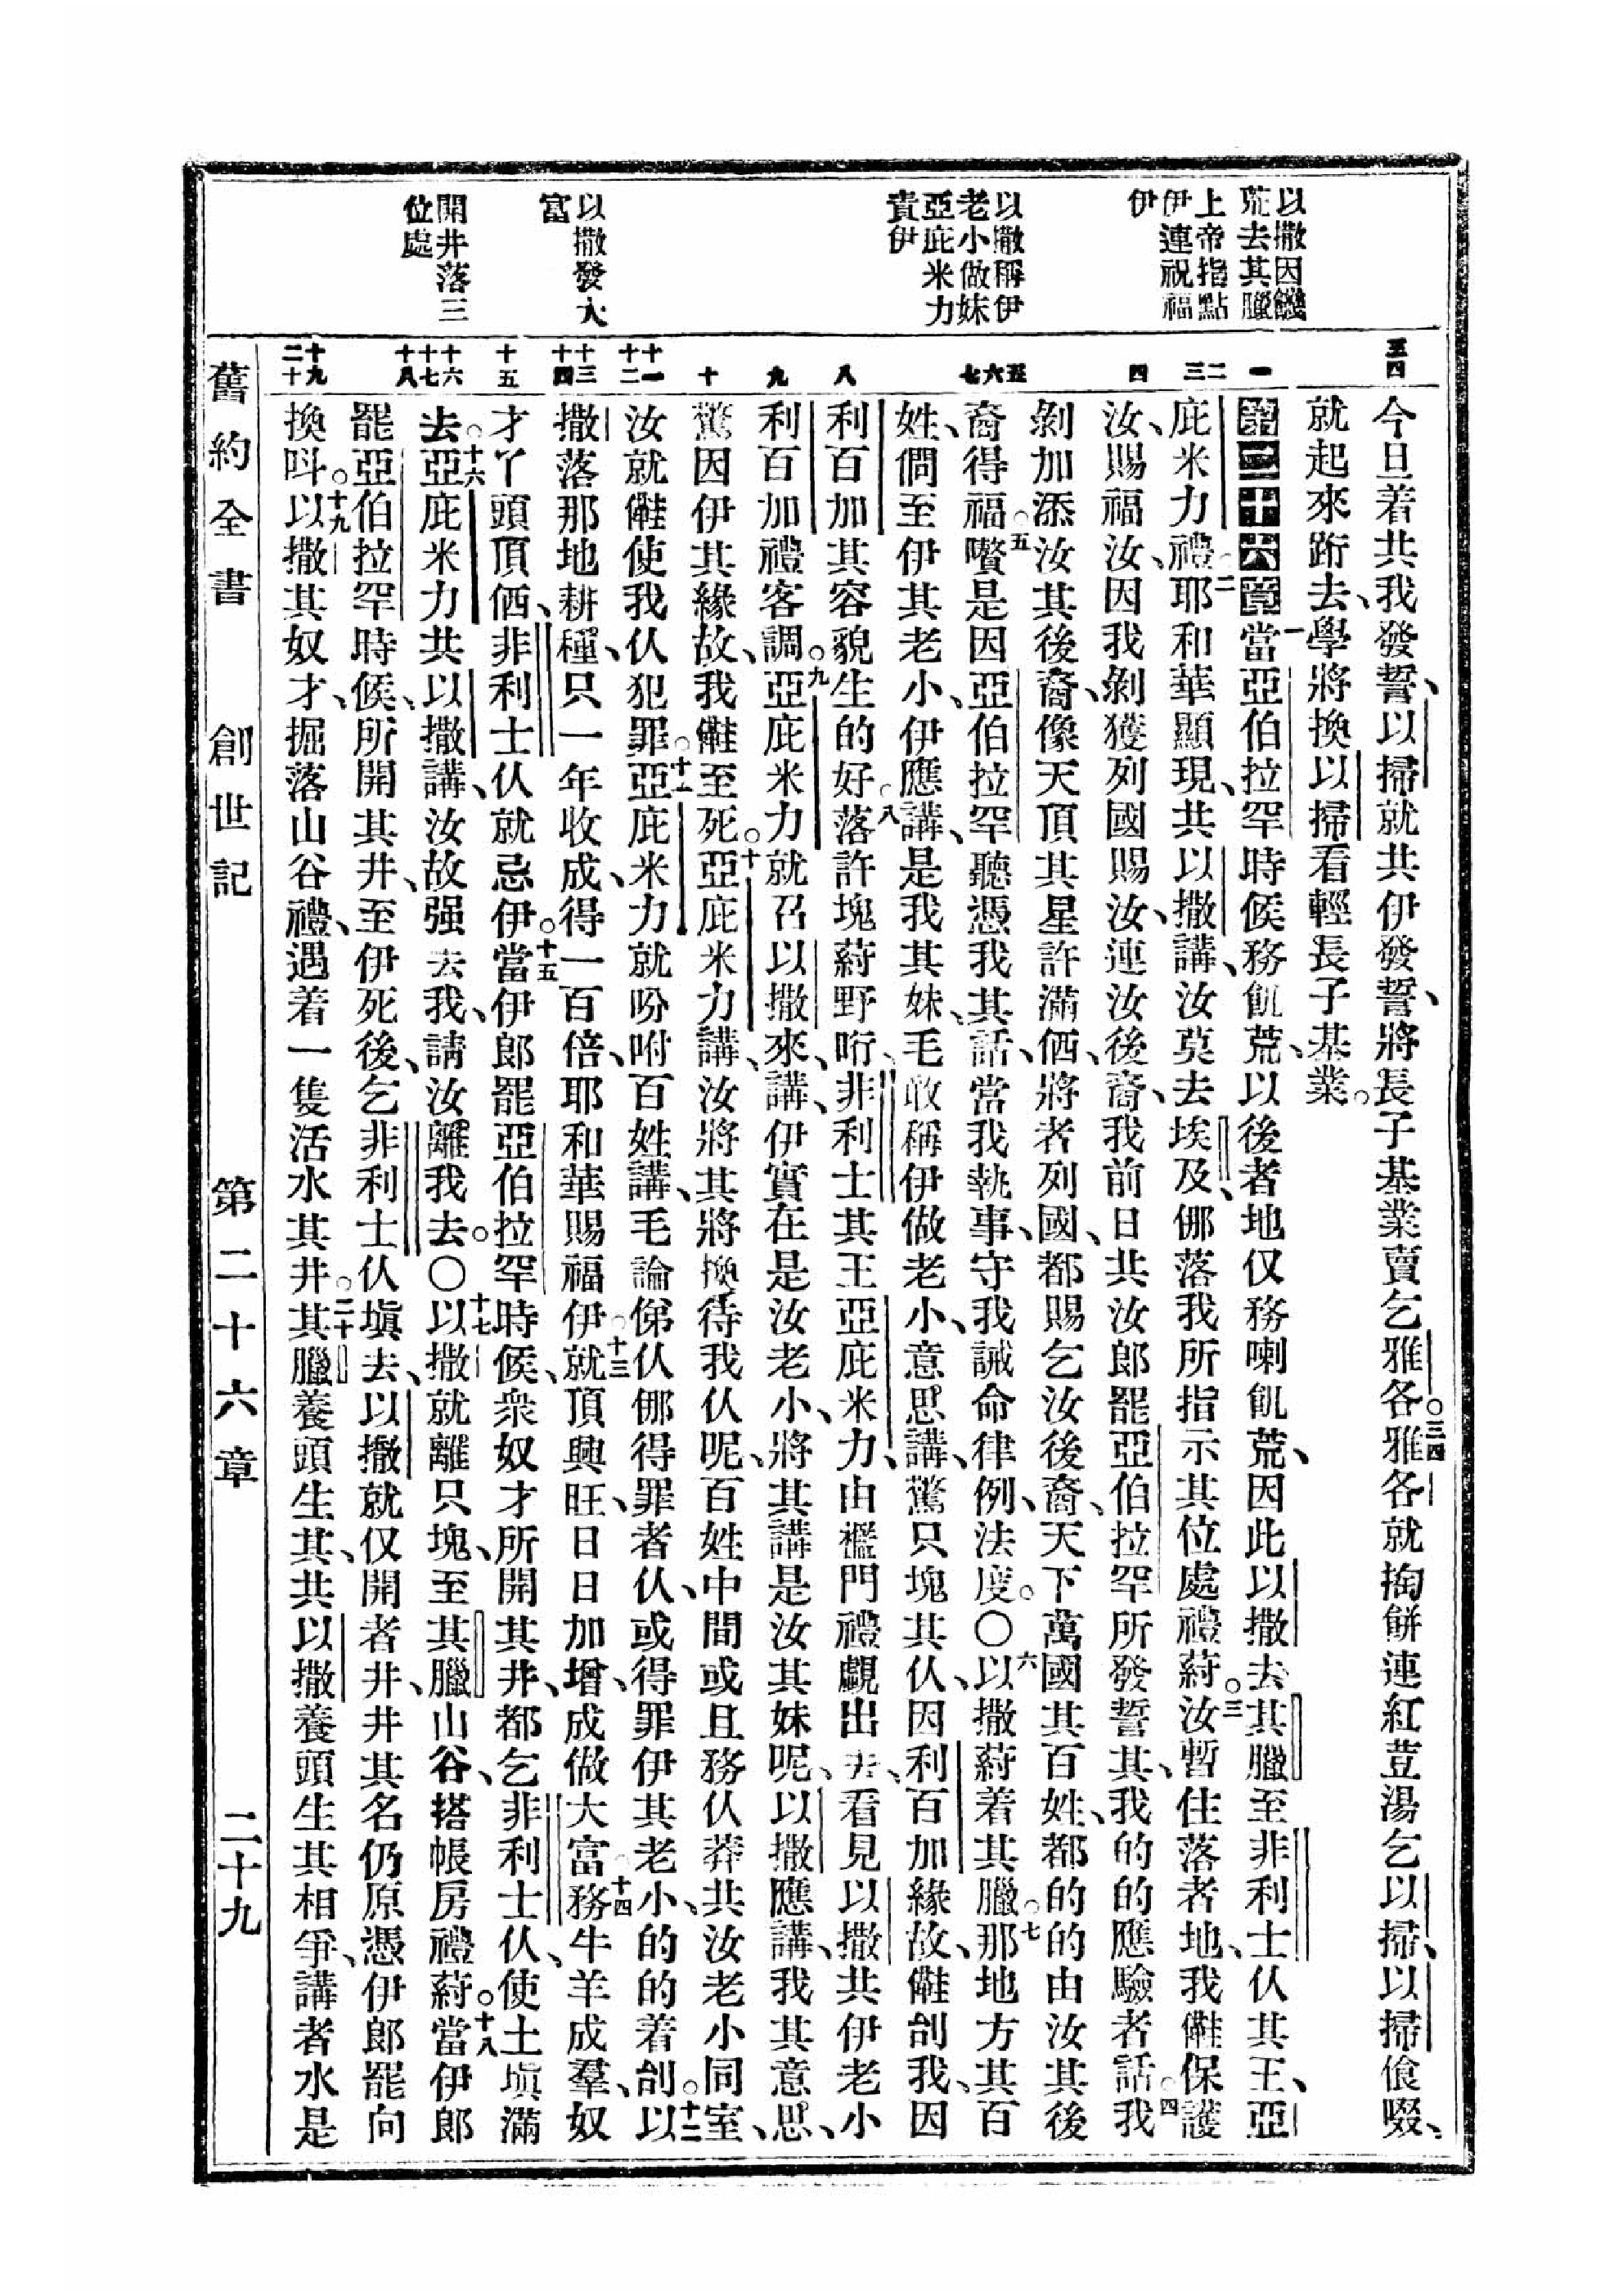 以撒因饑
荒去其臘
上帝指點
伊連祝福
伊
以撒稱伊
老小做妹
亞庇米力
責伊
以撒發大
富
開井落三
位處
三四
一
二
三
四
五
六
七
八
九
十
十一
十二
十三
十四
十五
十六
十七
十八
十九
二十
今旦着共我發誓、以掃就共伊發誓、將長子基業賣乞雅各。三四雅各就掏餅連紅荳湯乞以掃、以掃飡啜、
就起來跀去、學將換以掃看輕長子基業。
第二十六章 一當亞伯拉罕時候務飢荒、以後者地仅務喇飢荒、因此以撒去其臘至非利士仈其王、亞
庇米力禮。二耶和華顯現、共以撒講、汝莫去埃及、㑚落我所指示其位處禮蒔。三汝暫住落者地、我𠆧保護
汝、賜福汝、因我剝獲列國賜汝、連汝後裔、我前日共汝郎罷亞伯拉罕所發誓其、我的的應驗者話。四我
剝加添汝其後裔、像天頂其星許滿㑚、將者列國、都賜乞汝後裔、天下萬國其百姓、都的的由汝其後
裔得福。五嚽是因亞伯拉罕聽憑我其話、當我執事、守我誡命律例、法度。〇六以撒蒔着其臘。七那地方其百
姓、僩至伊其老小、伊應講、是我其妹、毛敢稱伊做老小、意思講、驚只塊其仈、因利百加緣故、𠆧刣我、因
利百加其容貌生的好。八落許塊蒔野哘、非利士其王亞庇米力、由襤門禮覷出去、看見以撒共伊老小
利百加禮客調。九亞庇米力就召以撒來、講、伊實在是汝老小、將其講是汝其妹呢、以撒應講、我其意思、
驚因伊其緣故、我𠆧至死。十亞庇米力講、汝將其將換待我仈呢、百姓中間或且務仈莽共汝老小同室、
汝就𠆧使我仈犯罪。十一亞庇米力就吩咐百姓講、毛論㑚仈㑚得罪者仈、或得罪伊其老小、的的着刣。十二以
撒落那地耕種、只一年收成、得一百倍、耶和華賜福伊。十三就頂興旺、日日加增、成做大富。十四務牛羊成羣、奴
才丫頭頂㑚、非利士仈就忌伊。十五當伊郎罷亞伯拉罕時候、衆奴才所開其井、都乞非利士仈、使土塡滿
去。十六亞庇米力共以撒講、汝故强去我、請汝離我去。〇十七以撒就離只塊、至其臘山谷、搭帳房禮蒔。十八當伊郎
罷亞伯拉罕時候、所開其井、至伊死後、乞非利士仈塡去、以撒就仅開者井、井其名仍原憑伊郎罷向
換呌。十九以撒其奴才、掘落山谷禮、遇着一隻活水其井。二十其臘養頭生其、共以撒養頭生其相爭、講者水是
舊約全書 創世記 第二十六章 二十九